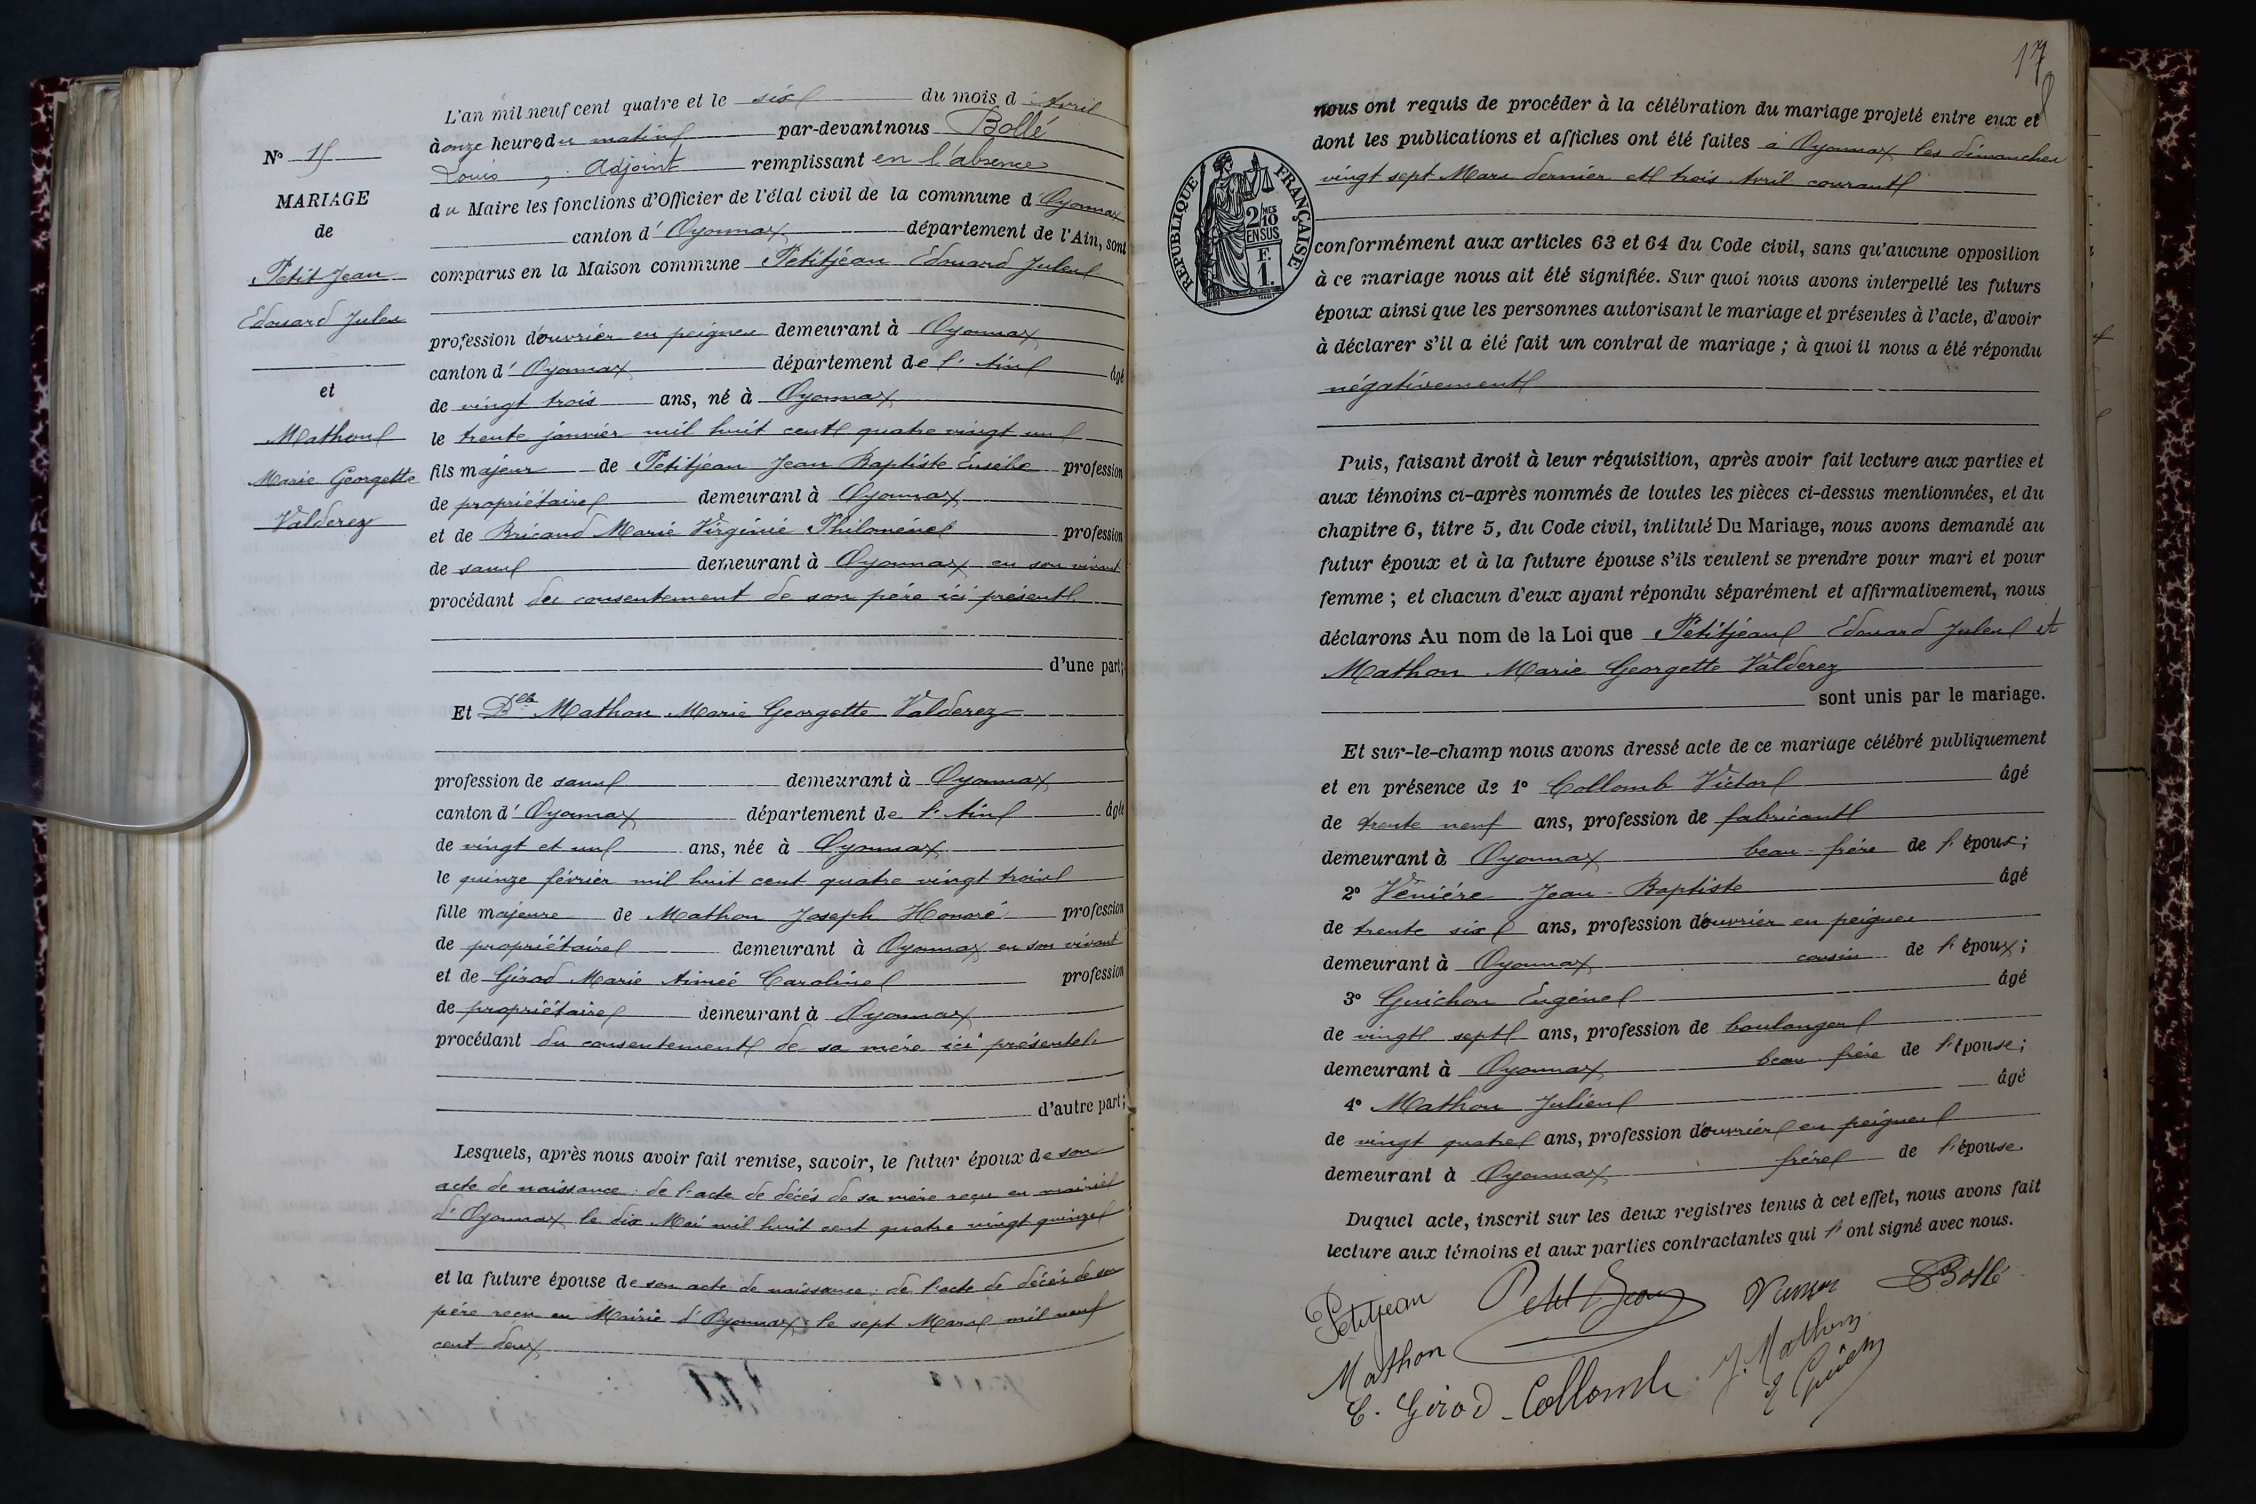 L'an mil neuf cent quatre et le six du mois d'Avril
à onze heure du matin par-devant nous Bollé
Louis, Adjoint remplissant en l'absence
du Maire les fonctions d'Officier de l'état civil de la commune d'Oyonnax
canton d'Oyonnax département de l'Ain, sont
comparus en la Maison commune Petitjean Edouard Jules
profession d'ouvrier en peignes demeurant à Oyonnax
canton d'Oyonnax département de l'Ain âgé
de vingt trois ans, né à Oyonnax
le trente janvier mil huit cent quatre vingt un
fils majeur de Petitjean Jean Baptiste Eusèbe profession
de propriétaire demeurant à Oyonnax
et de Bricaud Marie Virginie Philomène profession
de sans demeurant à Oyonnax en son vivant
procédant du consentement de son père ici présent
d'une part;
Et Dlle Mathon Marie Georgette Valderez
profession de sans demeurant à Oyonnax
canton d'Oyonnax département de l'Ain âgée
de vingt et un ans, née à Oyonnax
le quinze février mil huit cent quatre vingt trois
fille majeure de Mathon Joseph Honoré profession
de propriétaire demeurant à Oyonnax en son vivant
et de Girod Marie Aimée Caroline profession
de propriétaire demeurant à Oyonnax
procédant du consentement de sa mère ici présente.
d'autre part;
Lesquels, après nous avoir fait remise, savoir, le futur époux de son
acte de naissance : de l'acte de décès de sa mère reçu en mairie
d'Oyonnax le dix Mai mil huit cent quatre vingt quinze
et la future épouse de son acte de naissance : de l'acte de décès de son
père reçu en Mairie d'Oyonnax le sept Mars mil neuf
cent deux
N° 15
MARIAGE
de
Petit Jean
Edouard Jules
et
Mathon
Marie Georgette
Valderez
17
nous ont requis de procéder à la célébration du mariage projeté entre eux et
dont les publications et affiches ont été faites à Oyonnax les dimanches
vingt sept Mars dernier et trois Avril courant
RÉPUBLIQUE FRANÇAISE
2/10
MES
EN SUS
F.
1.
conformément aux articles 63 et 64 du Code civil, sans qu'aucune opposition
à ce mariage nous ait été signifiée. Sur quoi nous avons interpellé les futurs
époux ainsi que les personnes autorisant le mariage et présentes à l'acte, d'avoir
à déclarer s'il a été fait un contrat de mariage ; à quoi il nous a été répondu
négativement
Puis, faisant droit à leur réquisition, après avoir fait lecture aux parties et
aux témoins ci-après nommés de toutes les pièces ci-dessus mentionnées, et du
chapitre 6, titre 5, du Code civil, intitulé Du Mariage, nous avons demandé au
futur époux et à la future épouse s'ils veulent se prendre pour mari et pour
femme ; et chacun d'eux ayant répondu séparément et affirmativement, nous
déclarons Au nom de la Loi que Petitjean Edouard Jules et
Mathon Marie Georgette Valderez
sont unis par le mariage.
Et sur-le-champ nous avons dressé acte de ce mariage célébré publiquement
et en présence de 1° Collomb Victor âgé
de trente neuf ans, profession de fabricant
demeurant à Oyonnax beau-frère de l'époux;
2° Venière Jean-Baptiste âgé
de trente six ans, profession d'ouvrier en peignes
demeurant à Oyonnax cousin de l'époux;
3° Guichon Eugène âgé
de vingt sept ans, profession de boulanger
demeurant à Oyonnax beau frère de l'épouse;
4° Mathon Julien âgé
de vingt quatre ans, profession d'ouvrier en peignes
demeurant à Oyonnax frère de l'épouse
Duquel acte, inscrit sur les deux registres tenus à cet effet, nous avons fait
lecture aux témoins et aux parties contractantes qui l'ont signé avec nous.
Petitjean Petit Jean LBollé
Mathon J. Mathon
C. Girod Collomb E Guichon